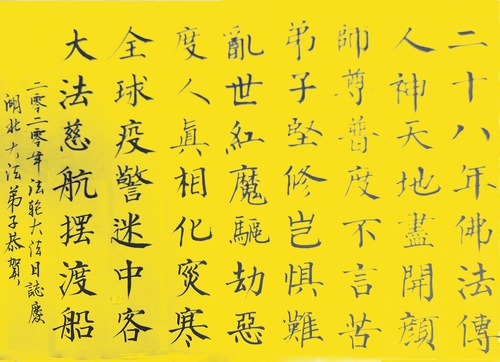 二十八年佛法傳
人神天地盡開顏
師尊普度不言苦
弟子堅修豈懼難
亂世紅魔驅劫惡
度人真相化寒
全球疫警迷中客
大法慈航擺渡船
二零二零年法大法日誌慶
湖北大法弟子恭賀